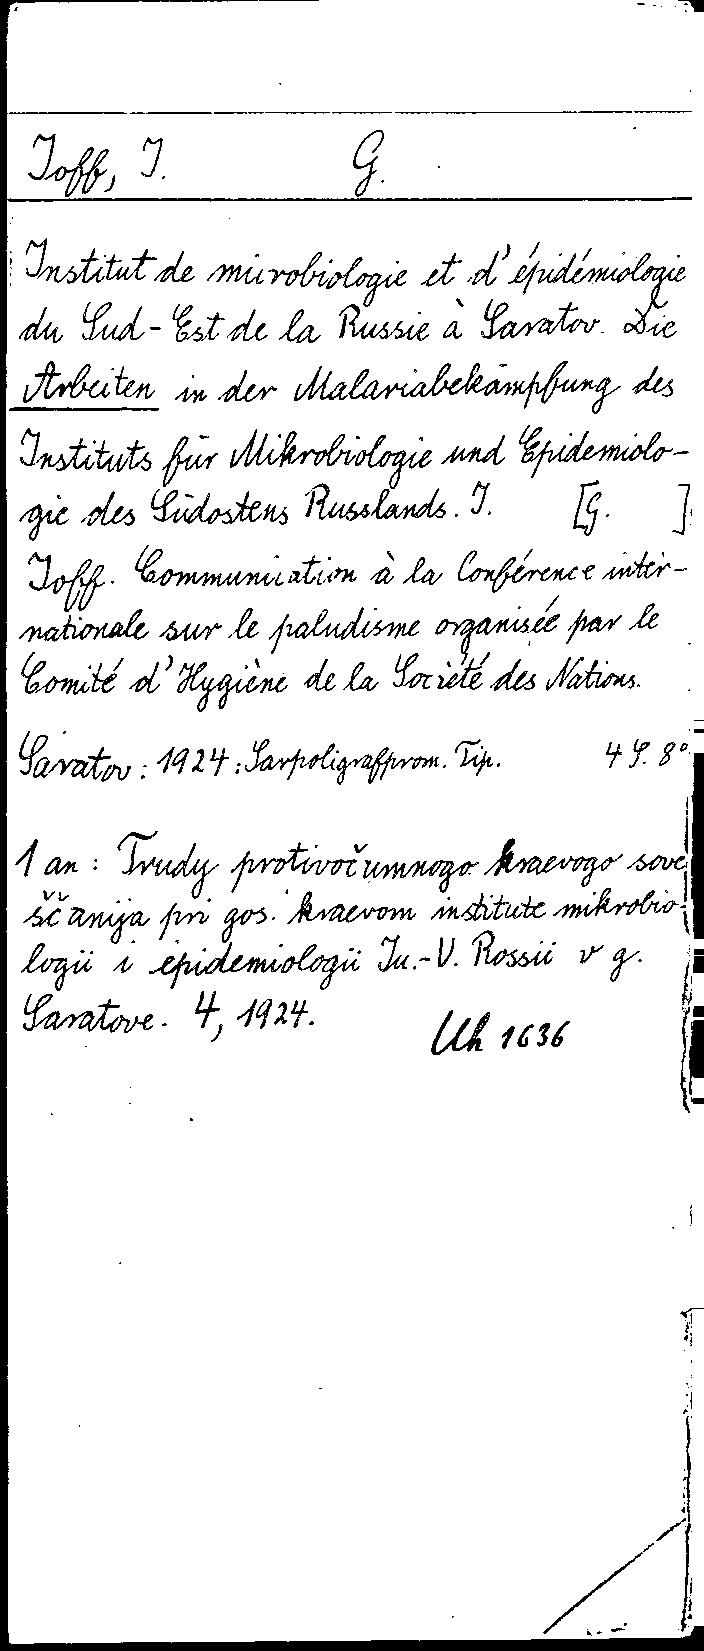 Joff, J. G.
Institut de microbiologie et d'épidémiologie
du Sud-Est de la Russie à Saratov. Die
Arbeiten in der Malariabekämpfung des
Instituts für Mikrobiologie und Epidemiolo-
gie des Südostens Russlands. J. [G. ]
Joff. Communication à la Conférence inter-
nationale sur le paludisme organisée par le
Comité d'Hygiène de la Société des Nations.
Saratov: 1924: Sarpoligrafprom. Tip. 4 S. 8°
1 an: Trudy protivočumnogo kraevogo sove
ščanija pri gos. kraevom institute mikrobio-
logii i epidemiologii Ju.-V. Rossii v g.
Saratove. 4, 1924.
Uh 1636